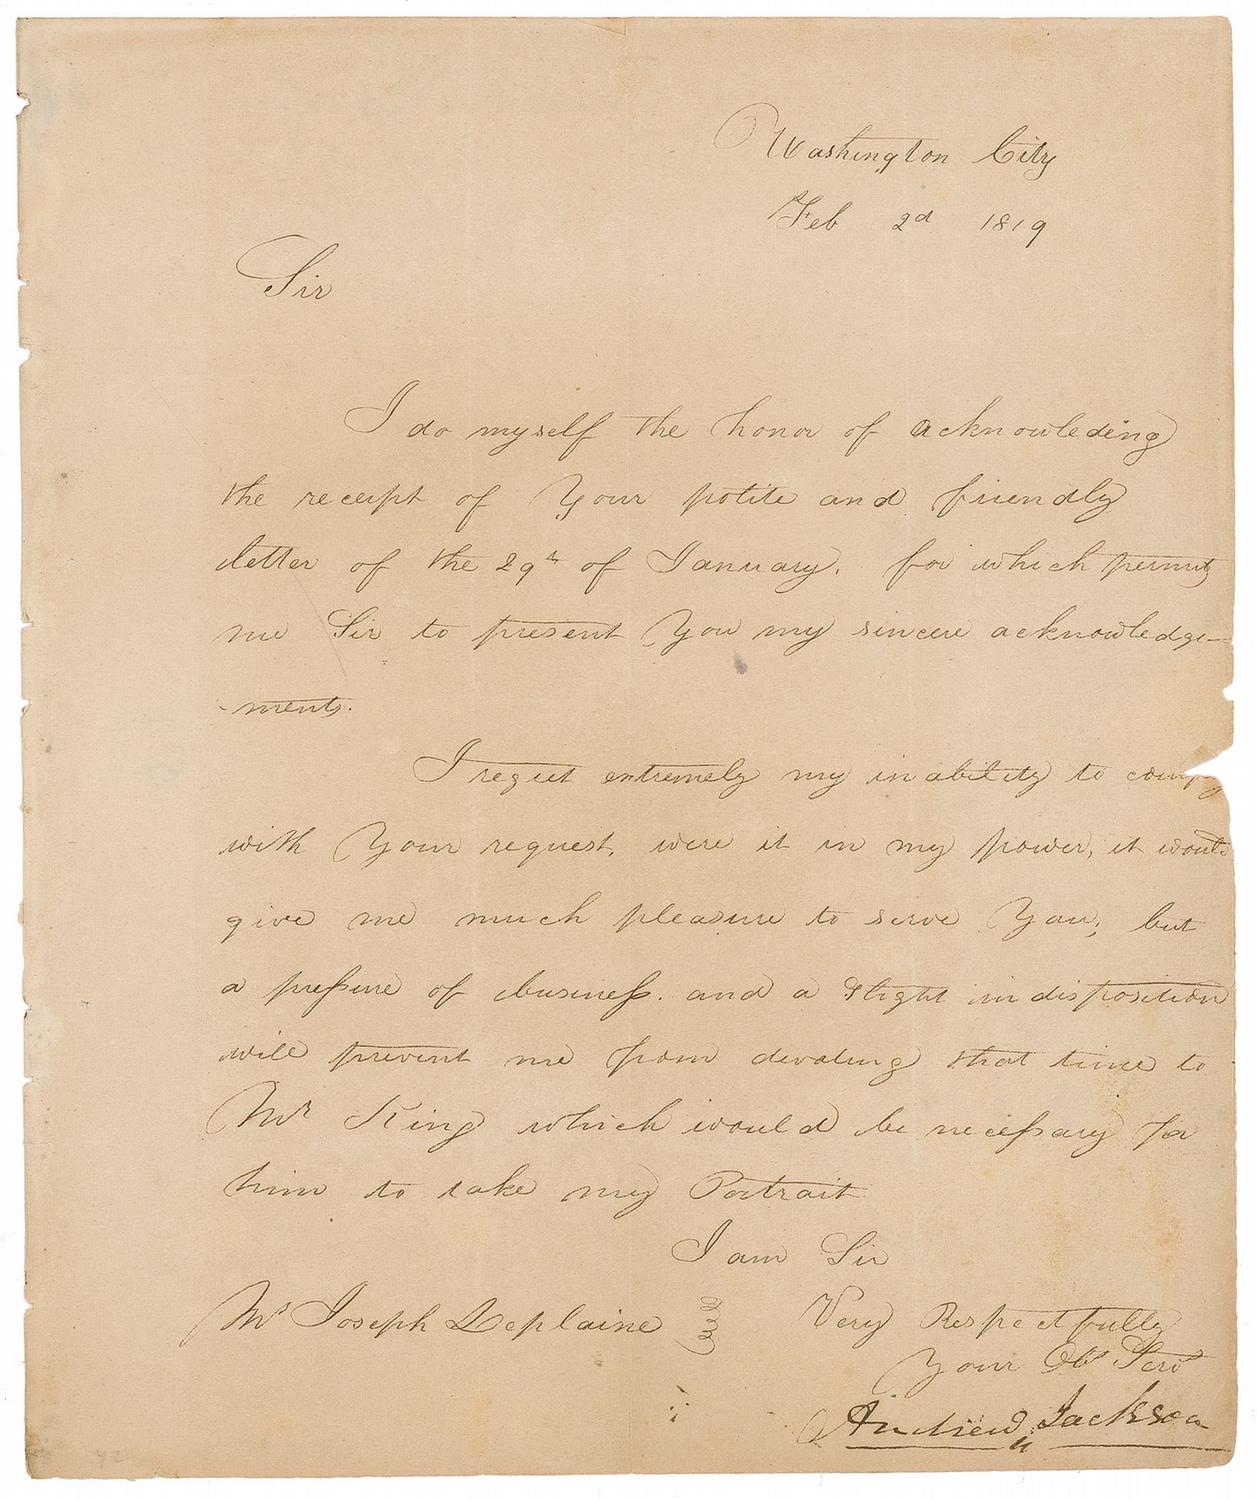 Washington City
Feb 2d 1819
Sir
I do myself the honor of acknowleding
the receipt of Your polite and friendly
letter of the 29th of January. for which permit
me Sir to present You my sincere acknowledge-
-ments.
I regret extremely my inability to comply
with Your request, were it in my power, it would
give me much pleasure to serve You; but
a pressure of business. and a slight indisposition
will prevent me from devoting that time to
Mr King which would be necessary for
him to take my Portrait
I am Sir
Mr Joseph Deplaine
Very Respectfully
Your Obt Servt
Andrew Jackson